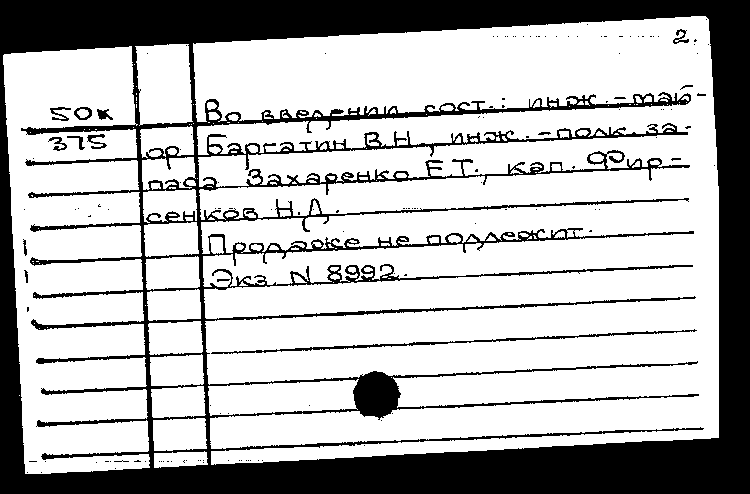 2.
50к Во введении сост.: инж.-май-
375 ор Баргатин В.Н., инж.-полк. за-
паса Захаренко Е.Т., кап. Фир-
сенков Н.Д.
Продаже не подлежит.
Экз. N 8992.